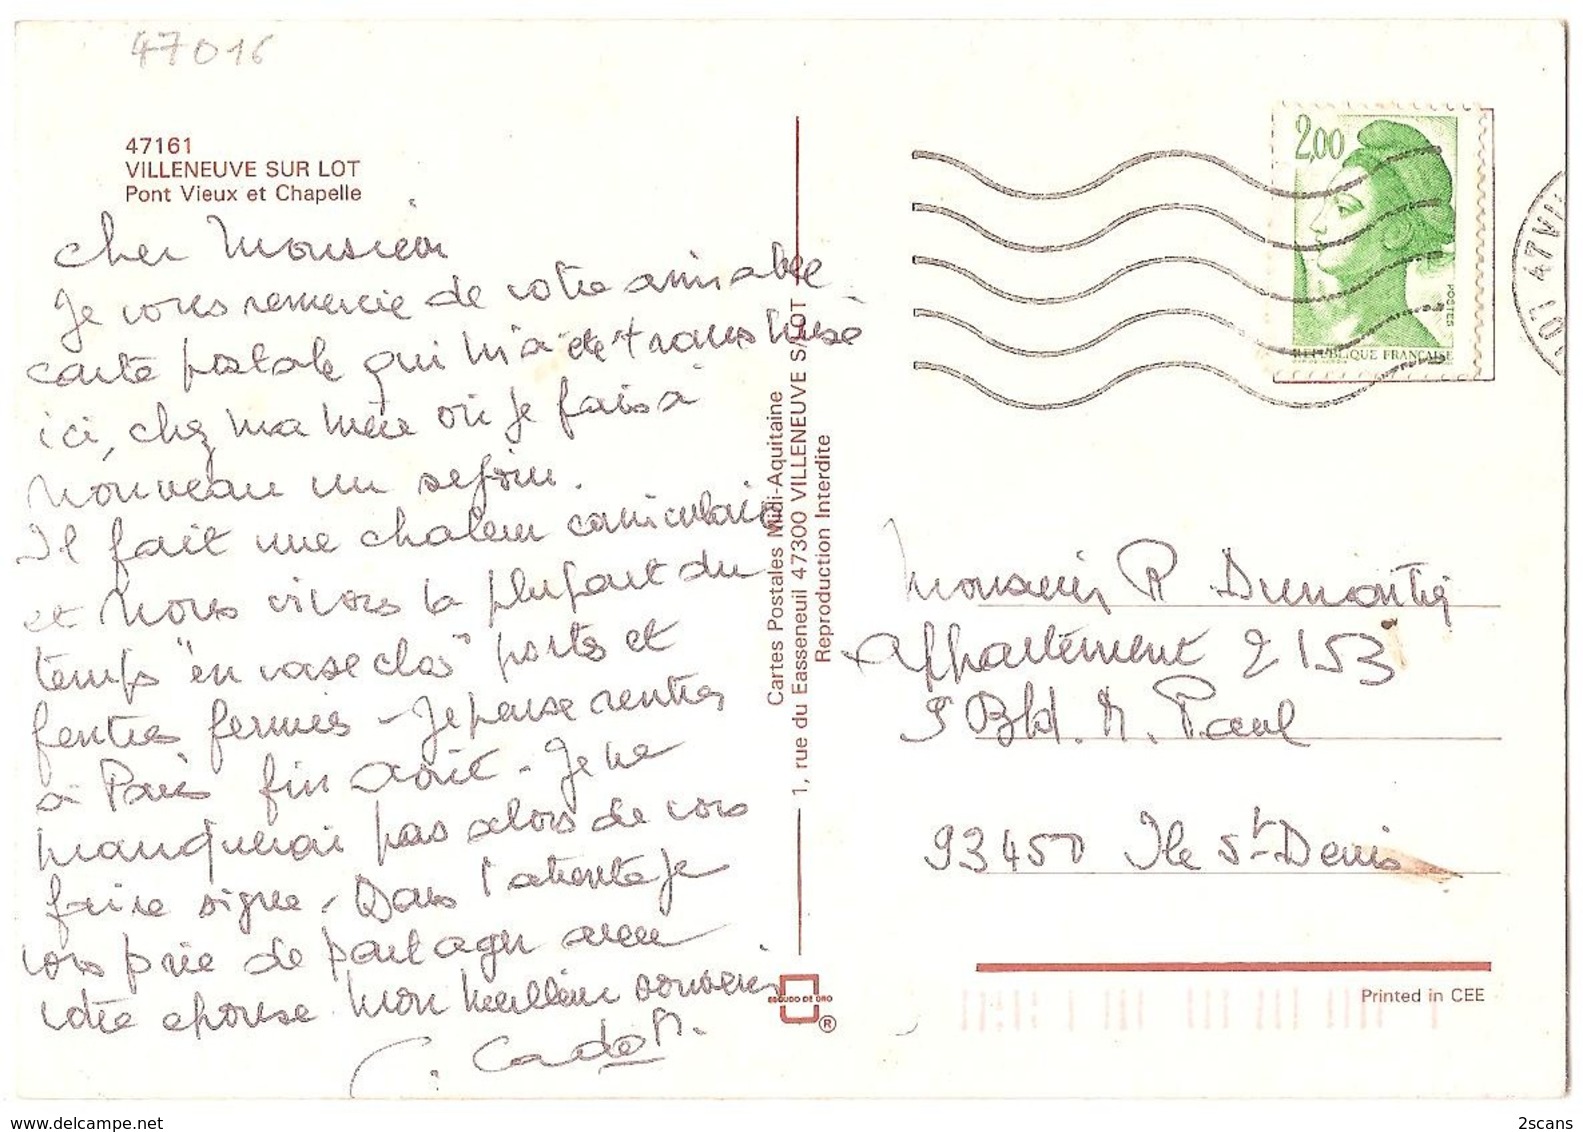 47016
47161
VILLENEUVE SUR LOT
Pont Vieux et Chapelle
Cher Monsieur
Je vous remercie de votre aimable
carte postale qui m'a été transmise
ici, chez ma mère où je fais à
nouveau un séjour.
Il fait une chaleur caniculaire
et nous vivons la plupart du
temps "en vase clos" portes et
fentres fermés - Je pense rentrer
à Paris fin août - Je ne
manquerai pas alors de vous
faire signe - Dans l'attente je
vous prie de partager avec
votre épouse mon meilleur souvenir
Cartes Postales Midi-Aquitaine
1, rue du Easseneuil 47300 VILLENEUVE S/LOT
Reproduction Interdite
ESCUDO DE ORO
®
2,00
POSTES
REPUBLIQUE FRANÇAISE
LOT 47 VIL
Monsieur R Dumontier
Appartement 2153
5 Bld. M. Paul
93450 Ile St-Denis
Printed in CEE
www.delcampe.net
2scans